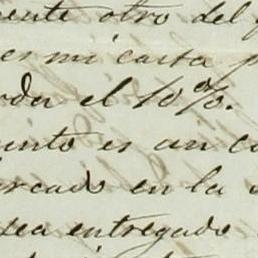 ente otro del
es mi carta p
der el 10%.
unto es un co
ercado en la
sea entregado